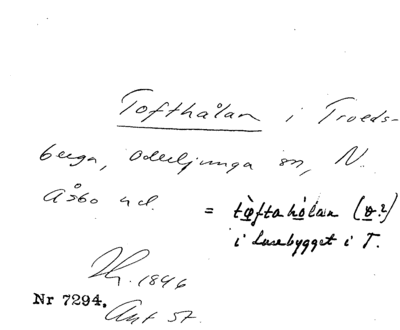 Tofthålan i Troeds-
berga, Oderljunga sn, N.
Åsbo hd.
= tœ̀ftahòlan (ɵ?)
i Lusebygget i T.
1846
Nr 7294. Ant st.